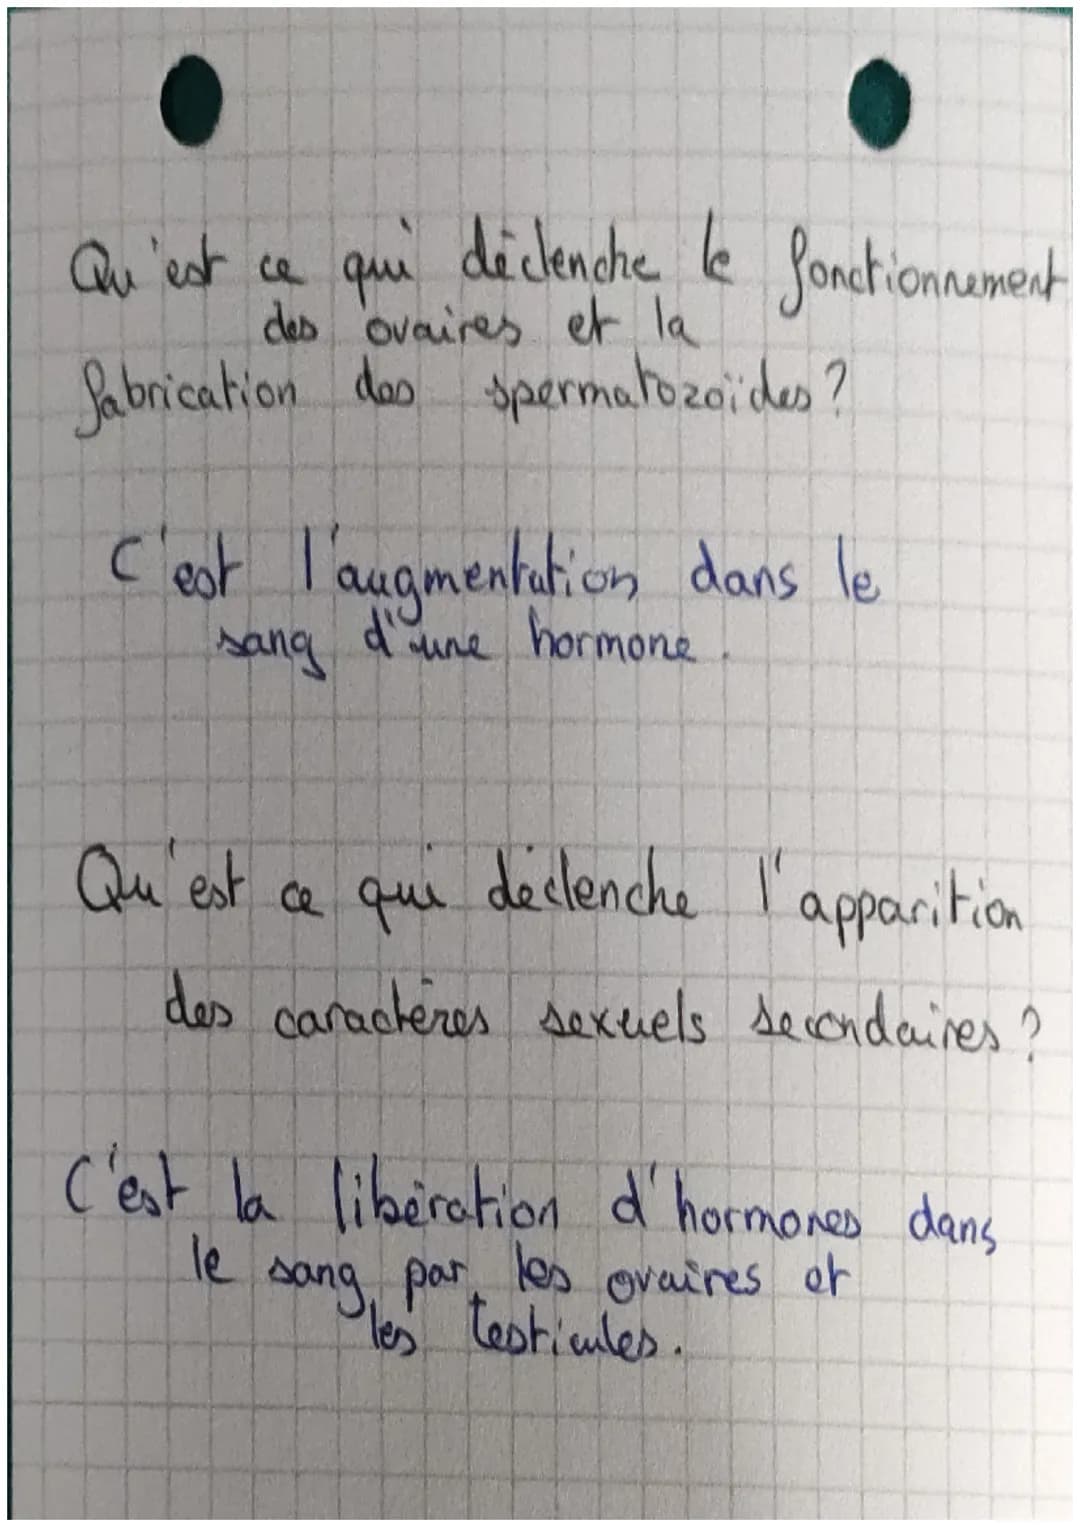 Qu'est ce qui déclenche le fonctionnement
des ovaires et la
fabrication des spermatozoïdes ?
C'est l'augmentation dans le
sang d'une hormone.
Qu'est ce qui déclenche l'apparition
des caractères sexuels secondaires ?
C'est la libération d'hormones dans
le sang par les ovaires et
les testicules.